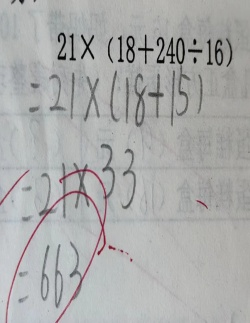 21×（18＋240÷16）
=21×(18+15)
=21×33
=663